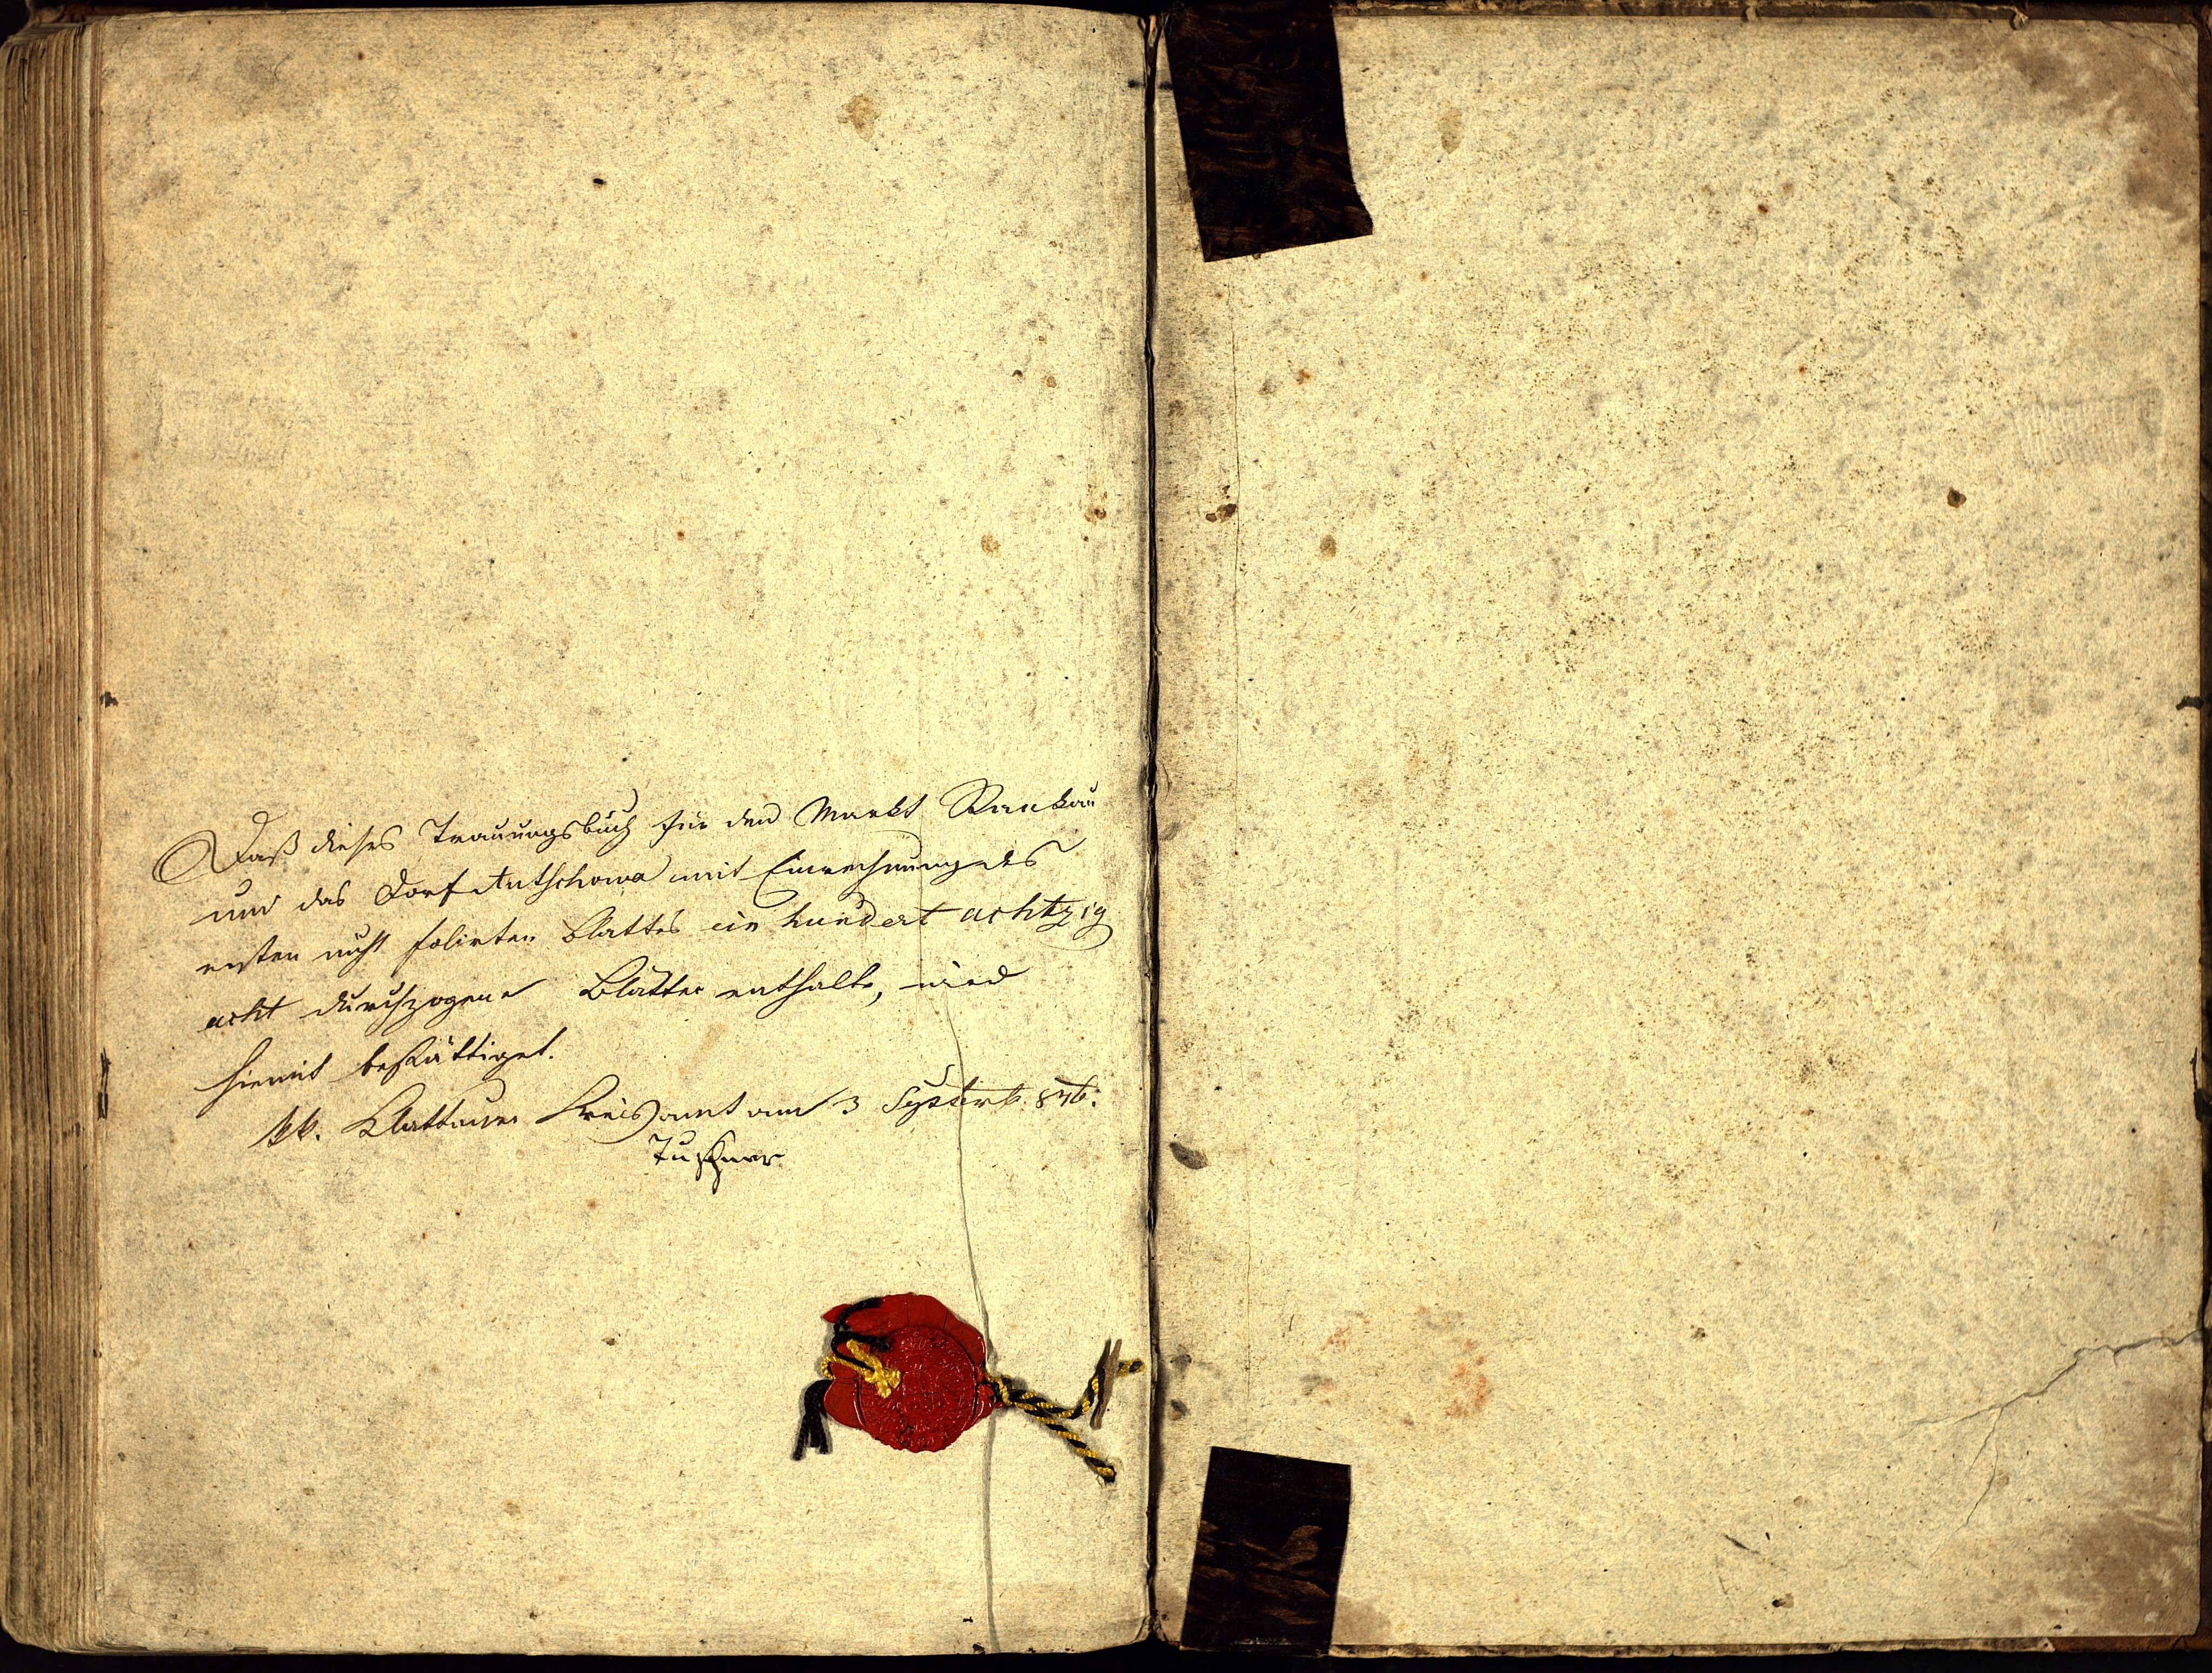 Daß dieses Trauungsbuch für den Markt Rankau
und das Dorf Autschowa mit Einrechnung des
ersten nicht folirten Blattes ein hundert achtzig
acht durchzogene Blätter enthalte, wird
hiemit bestättiget.
kk. Klattauer Kreisamt am 3 Septemb. 846.